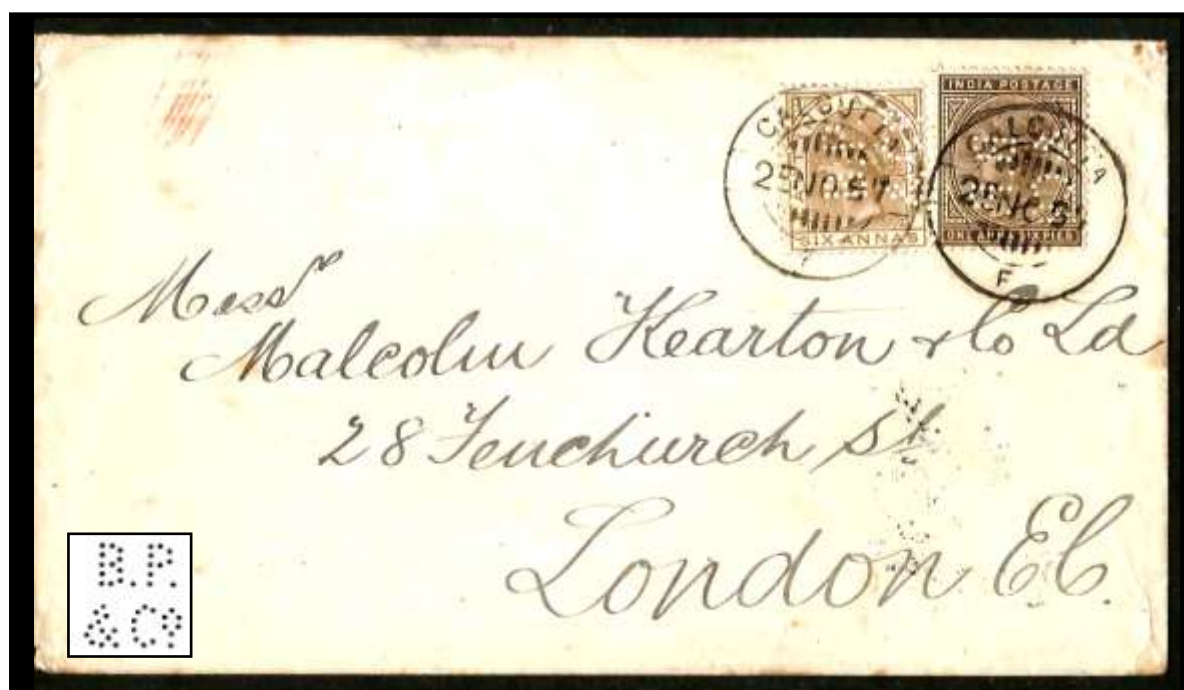 CALCUTTA
SIX ANNAS
INDIA POSTAGE
ONE ANNA SIX PIES
F
Messrs
Malcolm Kearton & Co Ld
28 Fenchurch St.
London EC.
B.P.
& Co.